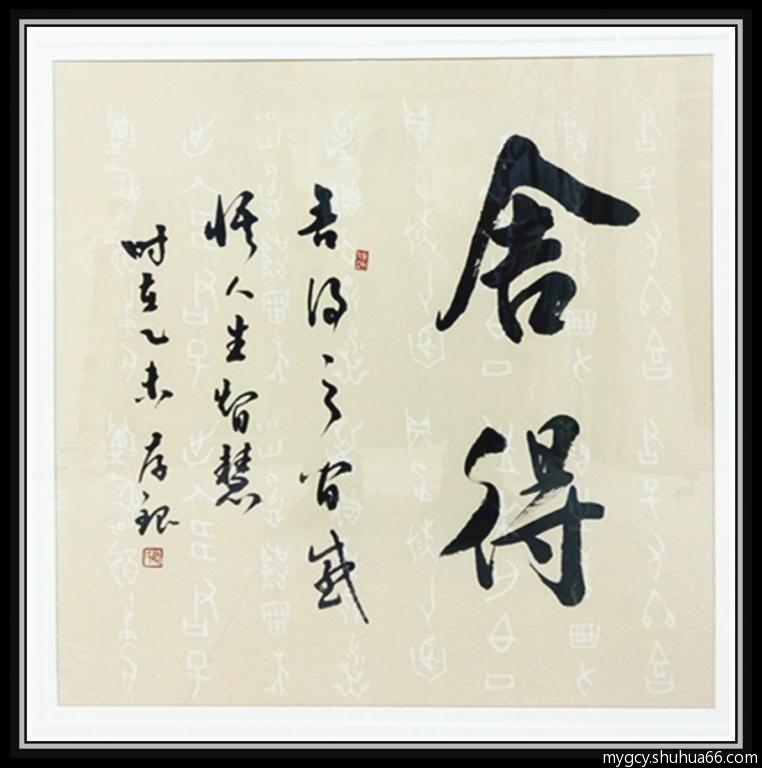 舍得
舍得之间感
悟人生智慧
时在乙未
mygcy.shuhua66.com